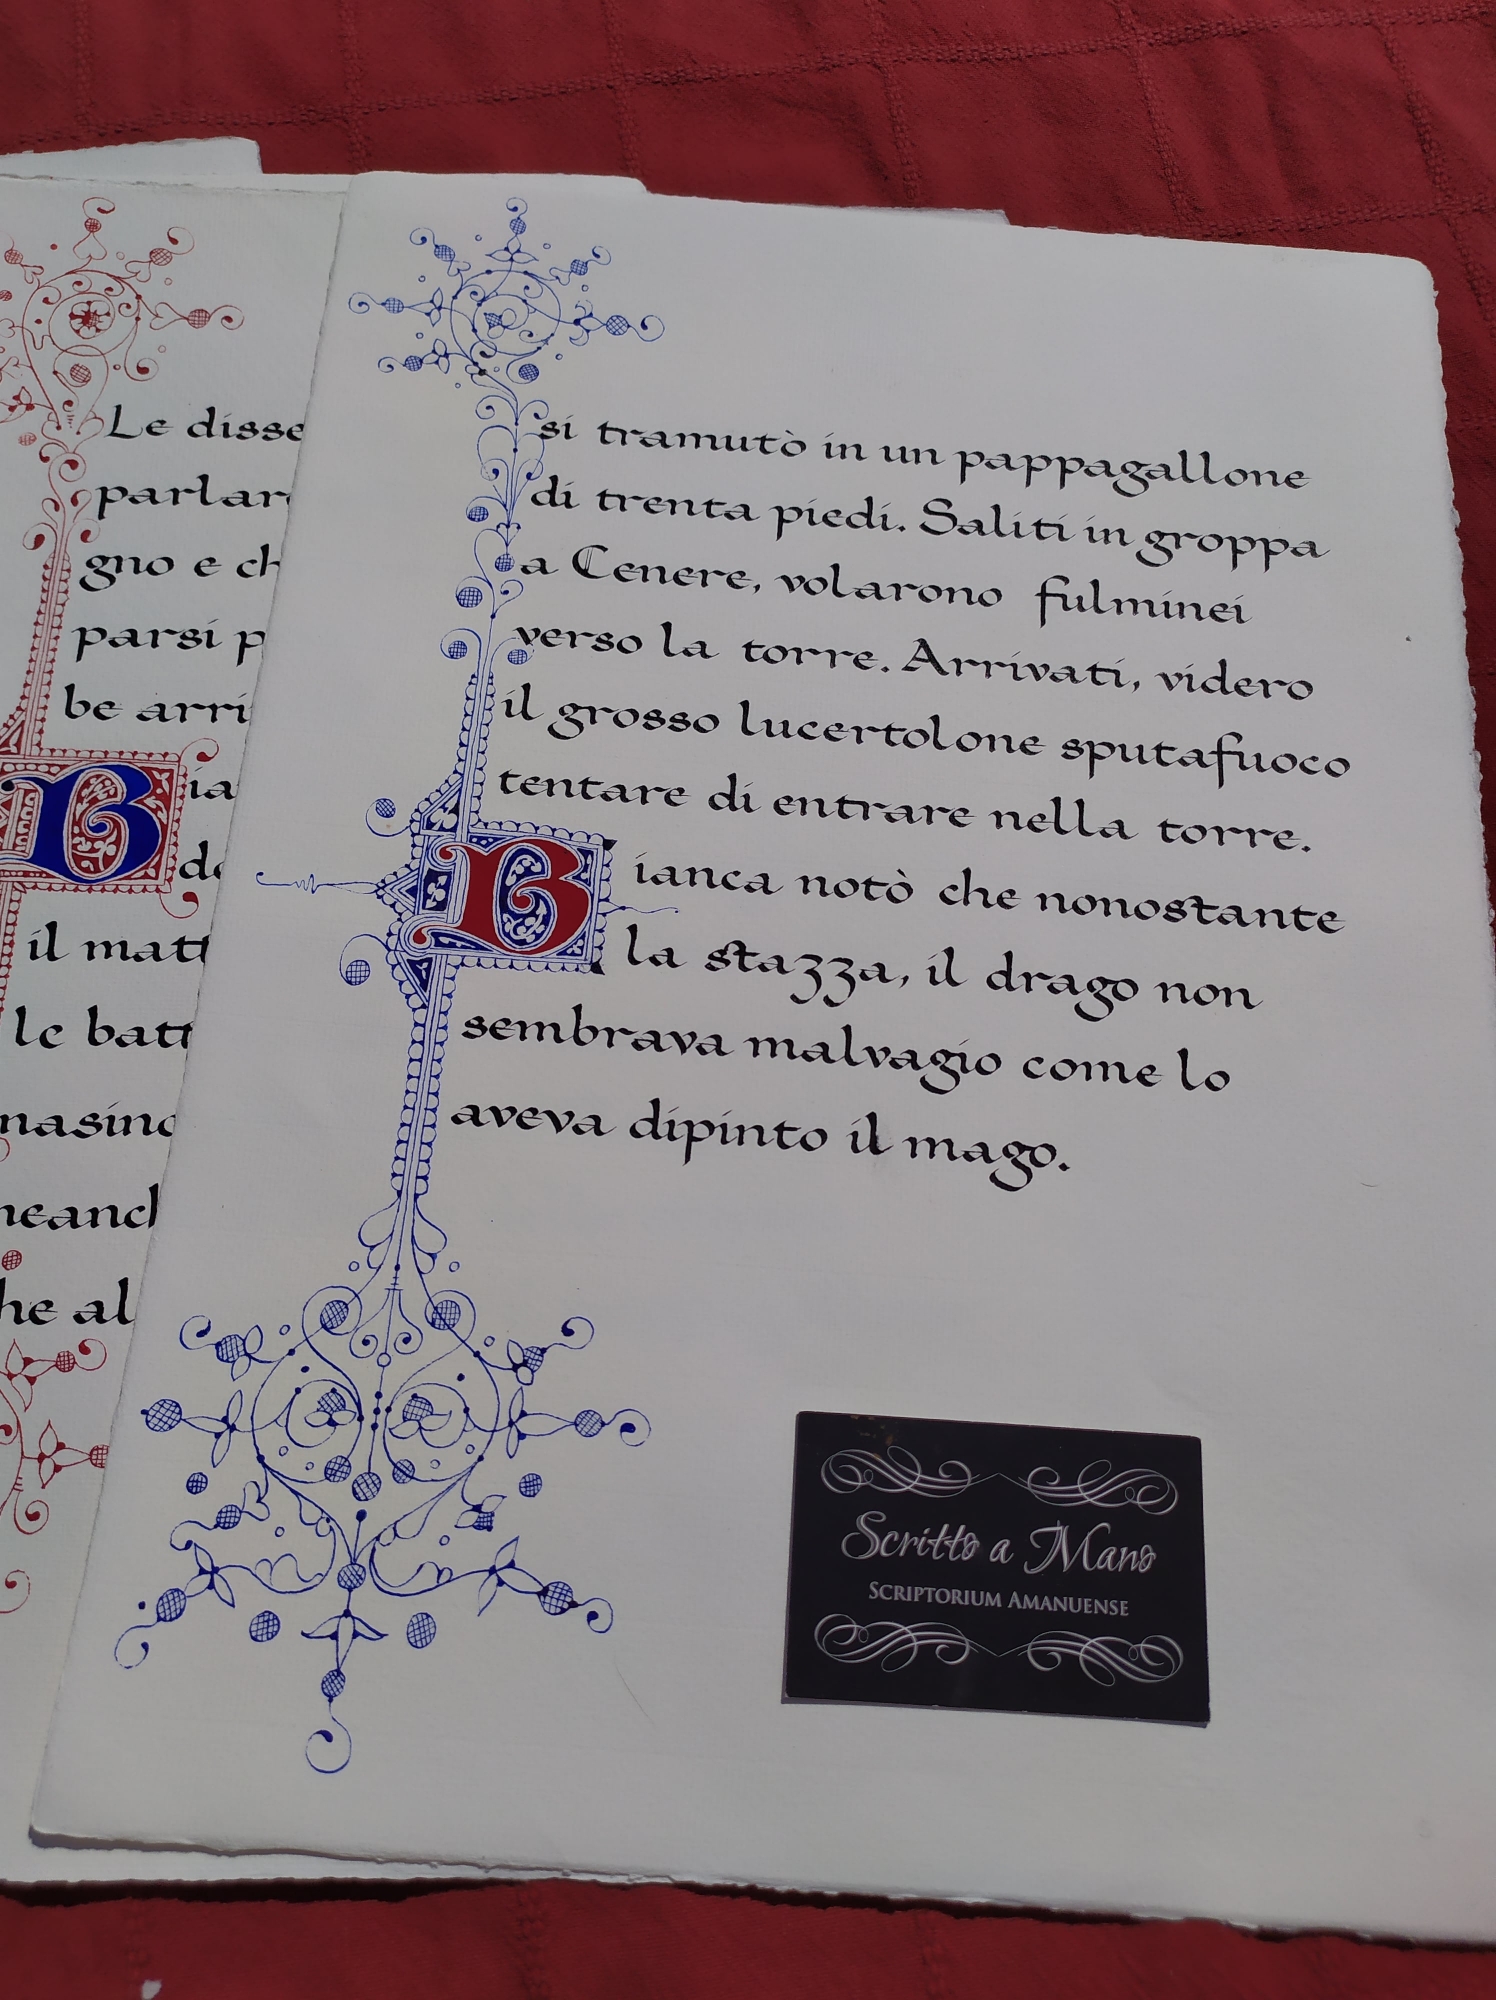 Le disse
parlar
gno e ch
parsi p
be arri
Bia
de
il matt
le batt
nasino
neanch
he al
si tramutò in un pappagallone
di trenta piedi. Saliti in groppa
a Cenere, volarono fulminei
verso la torre. Arrivati, videro
il grosso lucertolone sputafuoco
tentare di entrare nella torre.
Bianca notò che nonostante
la stazza, il drago non
sembrava malvagio come lo
aveva dipinto il mago.
Scritto a Mano
SCRIPTORIUM AMANUENSE